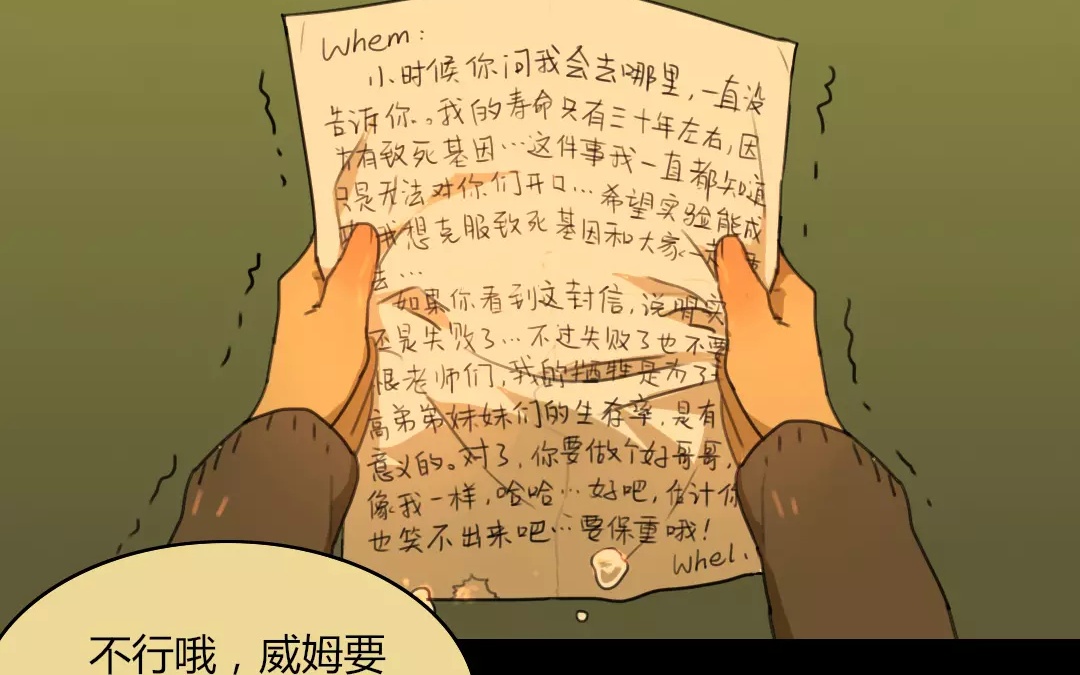 Whem:
小时候你问我会去哪里,一直没
告诉你。我的寿命只有三十年左右,因
有致死基因…这件事我一直都知道
只是无法对你们开口…希望实验能成
我想克服致死基因和大家一起
去…
如果你看到这封信,说明实
还是失败了…不过失败了也不要
恨老师们,我的牺牲是为了
高弟弟妹妹们的生存率,是有
意义的。对了,你要做个好哥哥,
像我一样,哈哈…好吧,估计你
也笑不出来吧…要保重哦!
Whel.
不行哦,威姆要